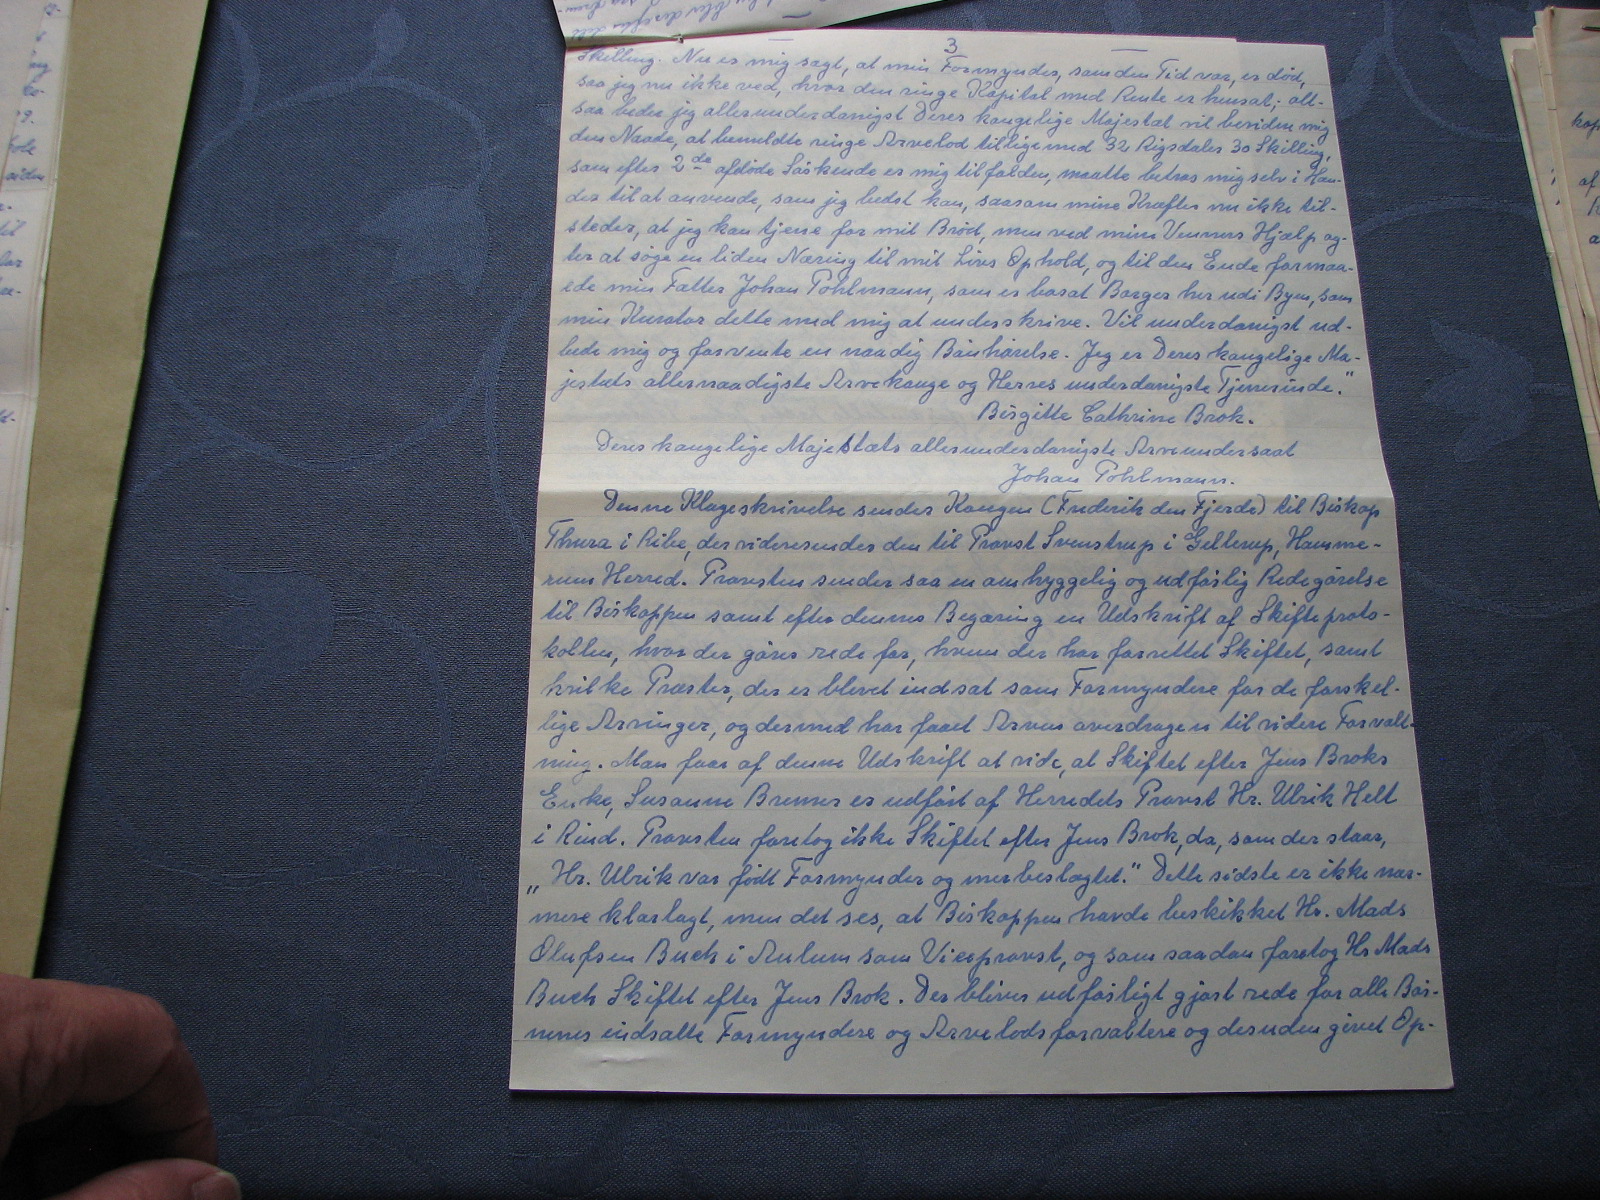 — 3 —
Skilling. Nu er mig sagt, at min Formynder, som den Tid var, er død,
saa jeg nu ikke ved, hvor den ringe Kapital med Rente er hensat; alt-
saa beder jeg allerunderdanigst Deres kongelige Majestæt vil bevidne mig
den Naade, at bemeldte ringe Arvelod tillige med 32 Rigsdaler 30 Skilling,
som efter 2de afdøde Søskende er mig tilfalden, maatte betros mig selv i Hæn-
der til at anvende, som jeg bedst kan, saasom mine Kræfter nu ikke til-
steder, at jeg kan tjene for mit Brød, men ved mine Venners Hjælp ag-
ter at søge en liden Næring til mit Livs Ophold, og til den Ende formaa-
ede min Fatter Johan Pohlmann, som er bosat Borger her udi Byen, som
min Kurator dette med mig at underskrive. Vil underdanigst ud-
bede mig og forvente en naadig Bønhørelse. Jeg er Deres kongelige Ma-
jestæts allernaadigste Arvekonge og Herres underdanigste Tjenerinde."
Birgitte Cathrine Brok.
Deres kongelige Majestæts allerunderdanigste Arveundersaat
Johan Pohlmann.
Denne Klageskrivelse sender Kongen (Frederik den Fjerde) til Biskop
Thura i Ribe, der videresender den til Provst Svenstrup i Gellerup, Hamme-
rum Herred. Provsten sender saa en omhyggelig og udførlig Redegørelse
til Biskoppen samt efter dennes Begæring en Udskrift af Skifteproto-
kollen, hvor der gøres rede for, hvem der har forrettet Skiftet, samt
hvilke Præster, der er blevet indsat som Formyndere for de forskel-
lige Arvinger, og dermed har faaet Arven overdragen til videre Forvalt-
ning. Man faar af denne Udskrift at vide, at Skiftet efter Jens Broks
Enke, Susanne Bremer er udført af Herredets Provst Hr. Ulrik Helt
i Rind. Provsten foretog ikke Skiftet efter Jens Brok, da, som der staar,
„Hr. Ulrik var født Formynder og nærbeslægtet." Dette sidste er ikke nær-
mere klarlagt, men det ses, at Biskoppen havde beskikket Hr. Mads
Olufsen Buch i Aulum som Viceprovst, og som saadan foretog Hr Mads
Buch Skiftet efter Jens Brok. Der bliver udførligt gjort rede for alle Bør-
nenes indsatte Formyndere og Arvelodsforvaltere og desuden givet Op-